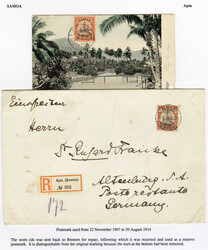 SAMOA
Apia
Einschreiben
Herrn
Apia (Samoa)
№ 302
Altenburg S.A.
Postorestante
Germany
Postmark used from 22 November 1907 to 29 August 1914
The worn cds was sent back to Bremen for repair, following which it was returned and used as a reserve
postmark. It is distinguishable from the original marking because the stars at the bottom had been removed.